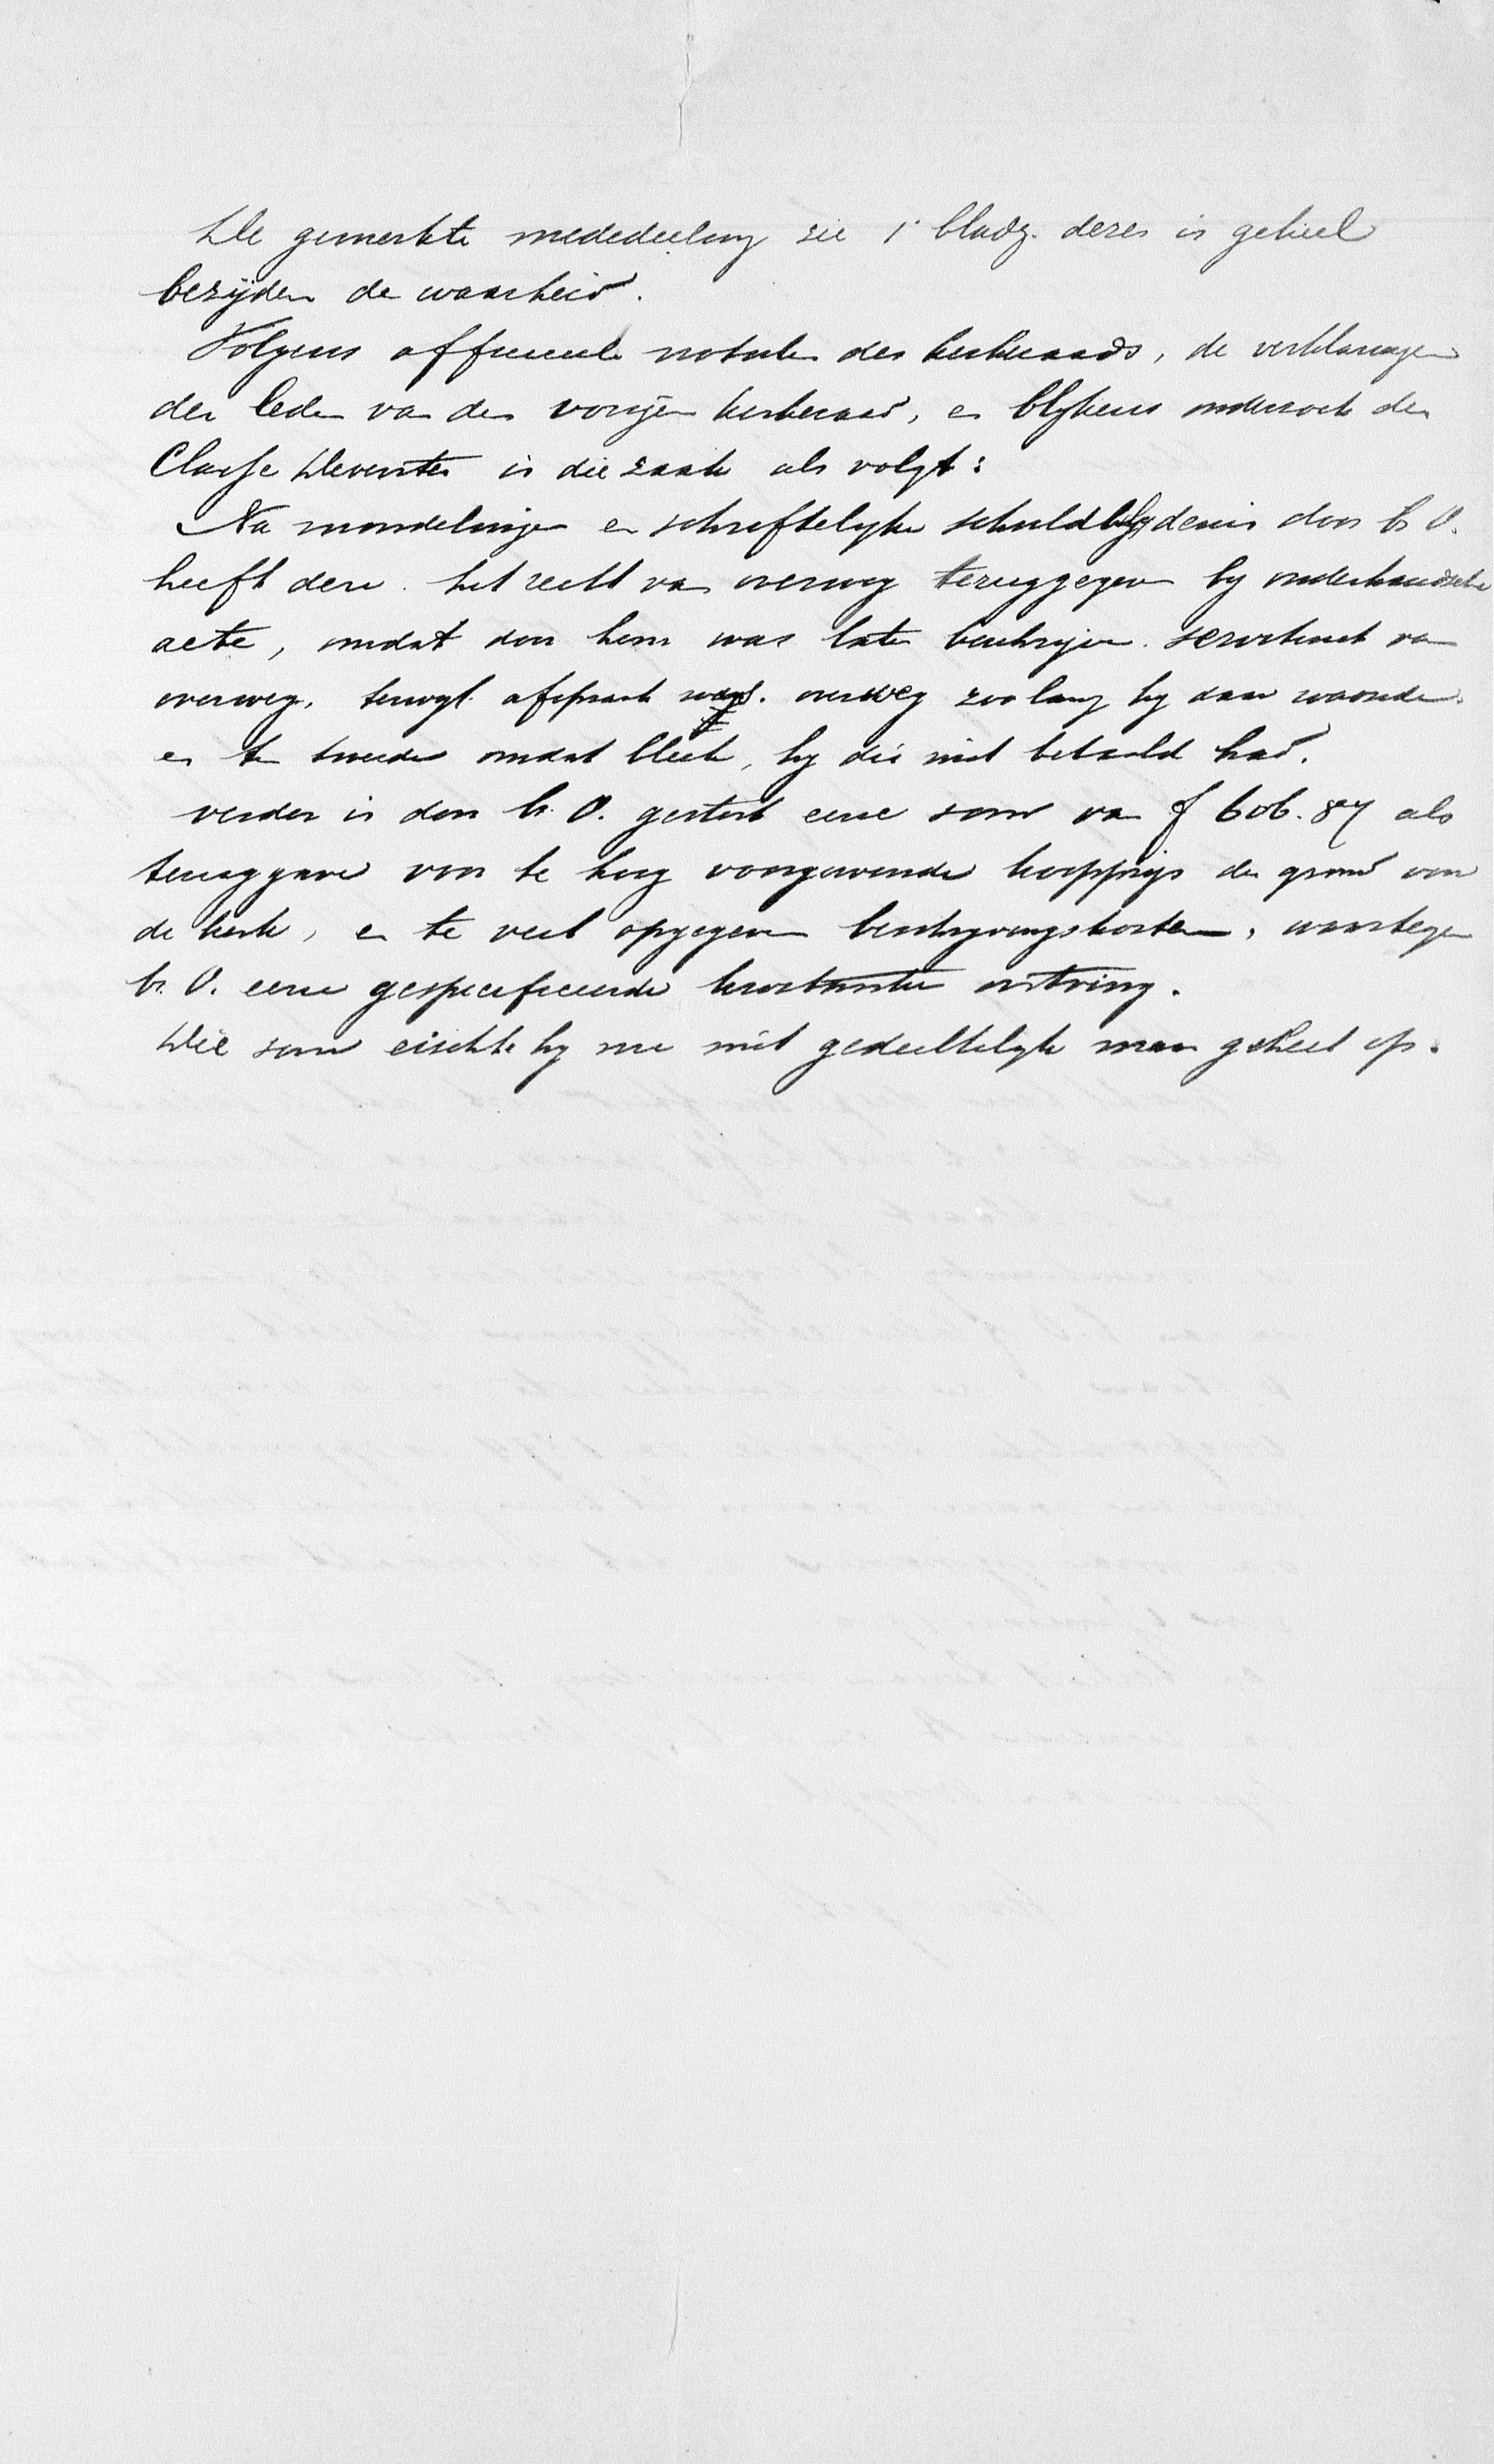 De gemerkte mededeeling zie 1e bladz. dezes is geheel
bezijden de waarheid.
Volgens officieele notulen des kerkeraads, de verklaringen
der leden van den vorigen kerkeraad, en blijkens onderzoek der
Classe Deventer is die zaak als volgt:
Na mondelinge en schriftelijke schuldbelijdenis door br O.
heeft deze het recht van overweg teruggegeven bij onderhandsche
acte, omdat door hem was laten beschrijven servituut van
overweg, terwijl afspraak was. overweg zoolang hij daar woonde.
en ten tweede omdat bleek, hij die niet betaald had.
verder is door br. O. gestort eene som van f 606.87 als
teruggave voor te hoog voorgewende koopprijs der grond van
de kerk, en te veel opgegeven beschrijvingskosten, waartegen
br. O. eene gespecificeerde kwitantie ontving.
Die som eischte hij nu niet gedeeltelijk maar geheel op.